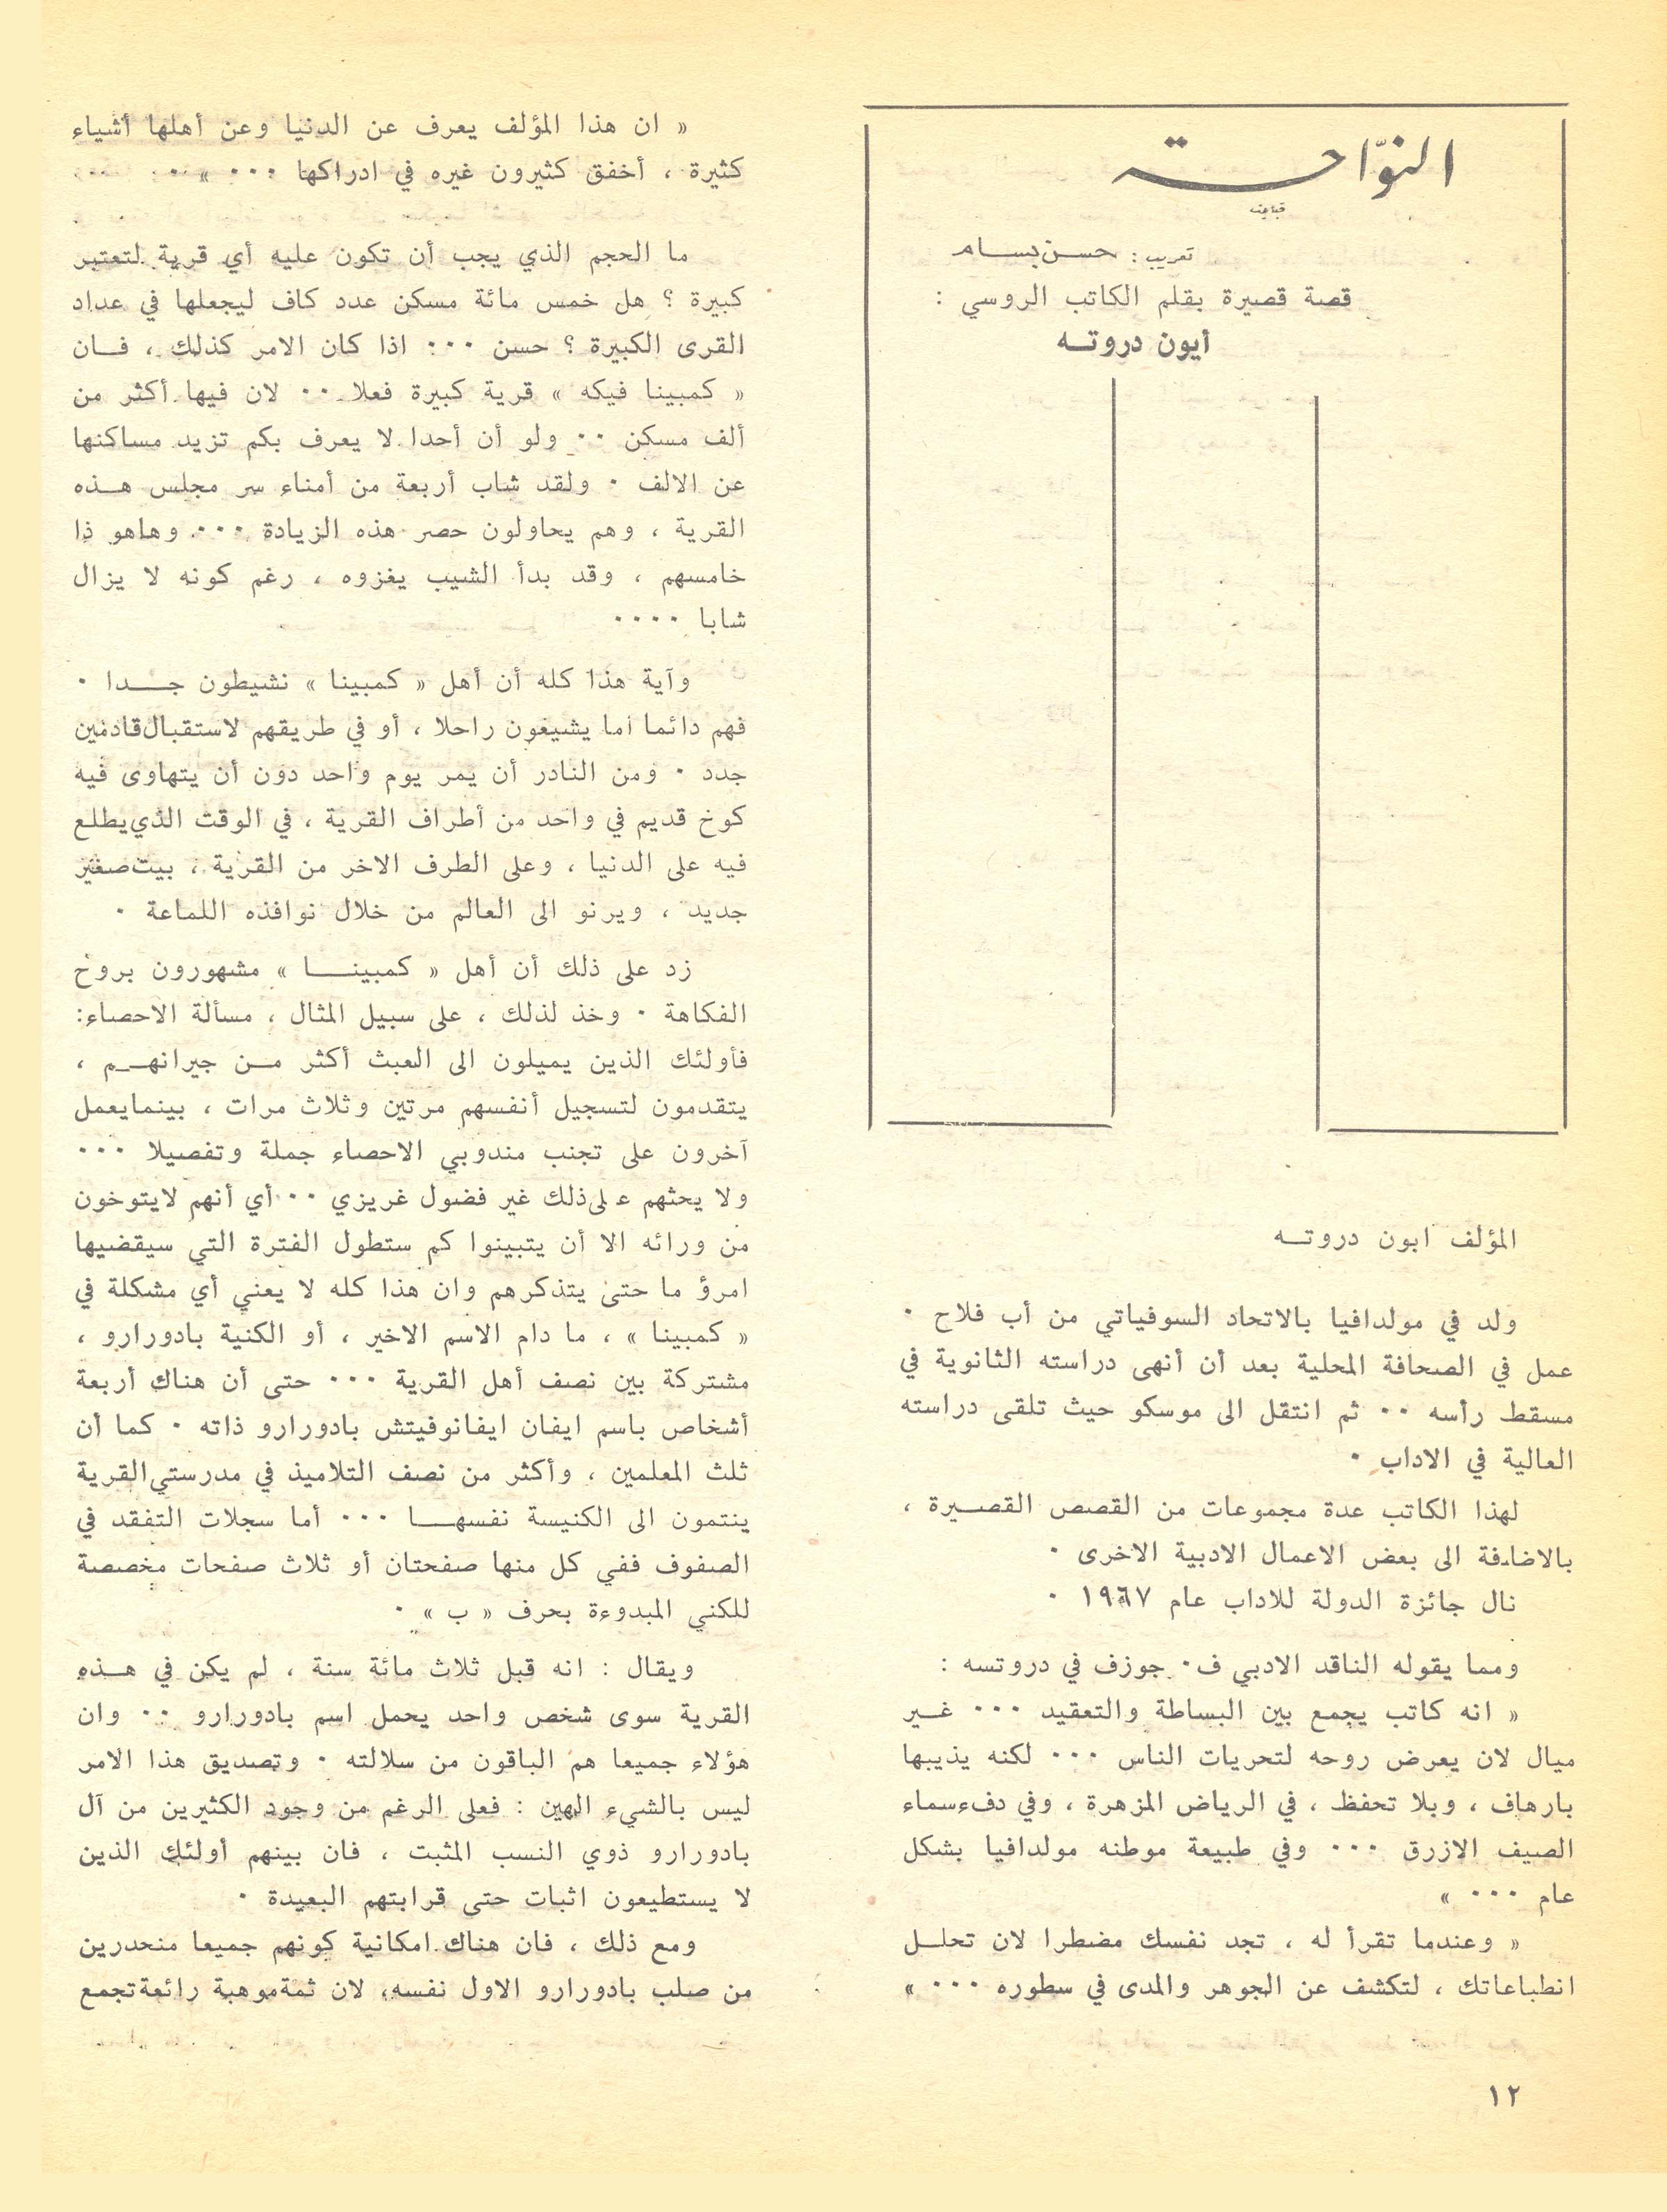 النوّاحة
تعريب : حسن بسام
قصة قصيرة بقلم الكاتب الروسي :
أيون دروته
المؤلف ايون دروته
ولد في مولدافيا بالاتحاد السوفياتي من أب فلاح ٠
عمل في الصحافة المحلية بعد أن أنهى دراسته الثانوية في
مسقط رأسه ٠٠ ثم انتقل الى موسكو حيث تلقى دراسته
العالية في الاداب ٠
لهذا الكاتب عدة مجموعات من القصص القصيرة ،
بالاضافة الى بعض الاعمال الادبية الاخرى ٠
نال جائزة الدولة للاداب عام ١٩٦٧ ٠
ومما يقوله الناقد الادبي ف٠ جوزف في دروتسه :
« انه كاتب يجمع بين البساطة والتعقيد ٠٠٠ غير
ميال لان يعرض روحه لتحريات الناس ٠٠٠ لكنه يذيبها
بارهاف ، وبلا تحفظ ، في الرياض المزهرة ، وفي دفء سماء
الصيف الازرق ٠٠٠ وفي طبيعة موطنه مولدافيا بشكل
عام ٠٠٠ »
« وعندما تقرأ له ، تجد نفسك مضطرا لان تحلل
انطباعاتك ، لتكشف عن الجوهر والمدى في سطوره ٠٠٠ »
« ان هذا المؤلف يعرف عن الدنيا وعن أهلها أشياء
كثيرة ، أخفق كثيرون غيره في ادراكها ٠٠٠ » ٠
ما الحجم الذي يجب أن تكون عليه أي قرية لتعتبر
كبيرة ؟ هل خمس مائة مسكن عدد كاف ليجعلها في عداد
القرى الكبيرة ؟ حسن ٠٠٠ اذا كان الامر كذلك ، فان
« كمبينا فيكه » قرية كبيرة فعلا ٠٠ لان فيها أكثر من
ألف مسكن ٠٠ ولو أن أحدا لا يعرف بكم تزيد مساكنها
عن الالف ٠ ولقد شاب أربعة من أمناء سر مجلس هذه
القرية ، وهم يحاولون حصر هذه الزيادة ٠٠٠ وهاهو ذا
خامسهم ، وقد بدأ الشيب يغزوه ، رغم كونه لا يزال
شابا ٠٠٠٠
وآية هذا كله أن أهل « كمبينا » نشيطون جدا ٠
فهم دائما اما يشيعون راحلا ، أو في طريقهم لاستقبال قادمين
جدد ٠ ومن النادر أن يمر يوم واحد دون أن يتهاوى فيه
كوخ قديم في واحد من أطراف القرية ، في الوقت الذي يطلع
فيه على الدنيا ، وعلى الطرف الاخر من القرية ، بيت صغير
جديد ، ويرنو الى العالم من خلال نوافذه اللماعة ٠
زد على ذلك أن أهل « كمبينا » مشهورون بروح
الفكاهة ٠ وخذ لذلك ، على سبيل المثال ، مسألة الاحصاء:
فأولئك الذين يميلون الى العبث أكثر من جيرانهم ،
يتقدمون لتسجيل أنفسهم مرتين وثلاث مرات ، بينما يعمل
آخرون على تجنب مندوبي الاحصاء جملة وتفصيلا ٠٠٠
ولا يحثهم على ذلك غير فضول غريزي ٠٠ أي أنهم لا يتوخون
من ورائه الا أن يتبينوا كم ستطول الفترة التي سيقضيها
امرؤ ما حتى يتذكرهم وان هذا كله لا يعني أي مشكلة في
« كمبينا » ، ما دام الاسم الاخير ، أو الكنية بادورارو ،
مشتركة بين نصف أهل القرية ٠٠٠ حتى أن هناك أربعة
أشخاص باسم ايفان ايفانوفيتش بادورارو ذاته ٠ كما أن
ثلث المعلمين ، وأكثر من نصف التلاميذ في مدرستي القرية
ينتمون الى الكنيسة نفسها ٠٠٠ أما سجلات التفقد في
الصفوف ففي كل منها صفحتان أو ثلاث صفحات مخصصة
للكنى المبدوءة بحرف « ب » ٠
ويقال : انه قبل ثلاث مائة سنة ، لم يكن في هذه
القرية سوى شخص واحد يحمل اسم بادورارو ٠٠ وان
هؤلاء جميعا هم الباقون من سلالته ٠ وتصديق هذا الامر
ليس بالشيء الهين : فعلى الرغم من وجود الكثيرين من آل
بادورارو ذوي النسب المثبت ، فان بينهم أولئك الذين
لا يستطيعون اثبات حتى قرابتهم البعيدة ٠
ومع ذلك ، فان هناك امكانية كونهم جميعا منحدرين
من صلب بادورارو الاول نفسه، لان ثمة موهبة رائعة تجمع
١٢